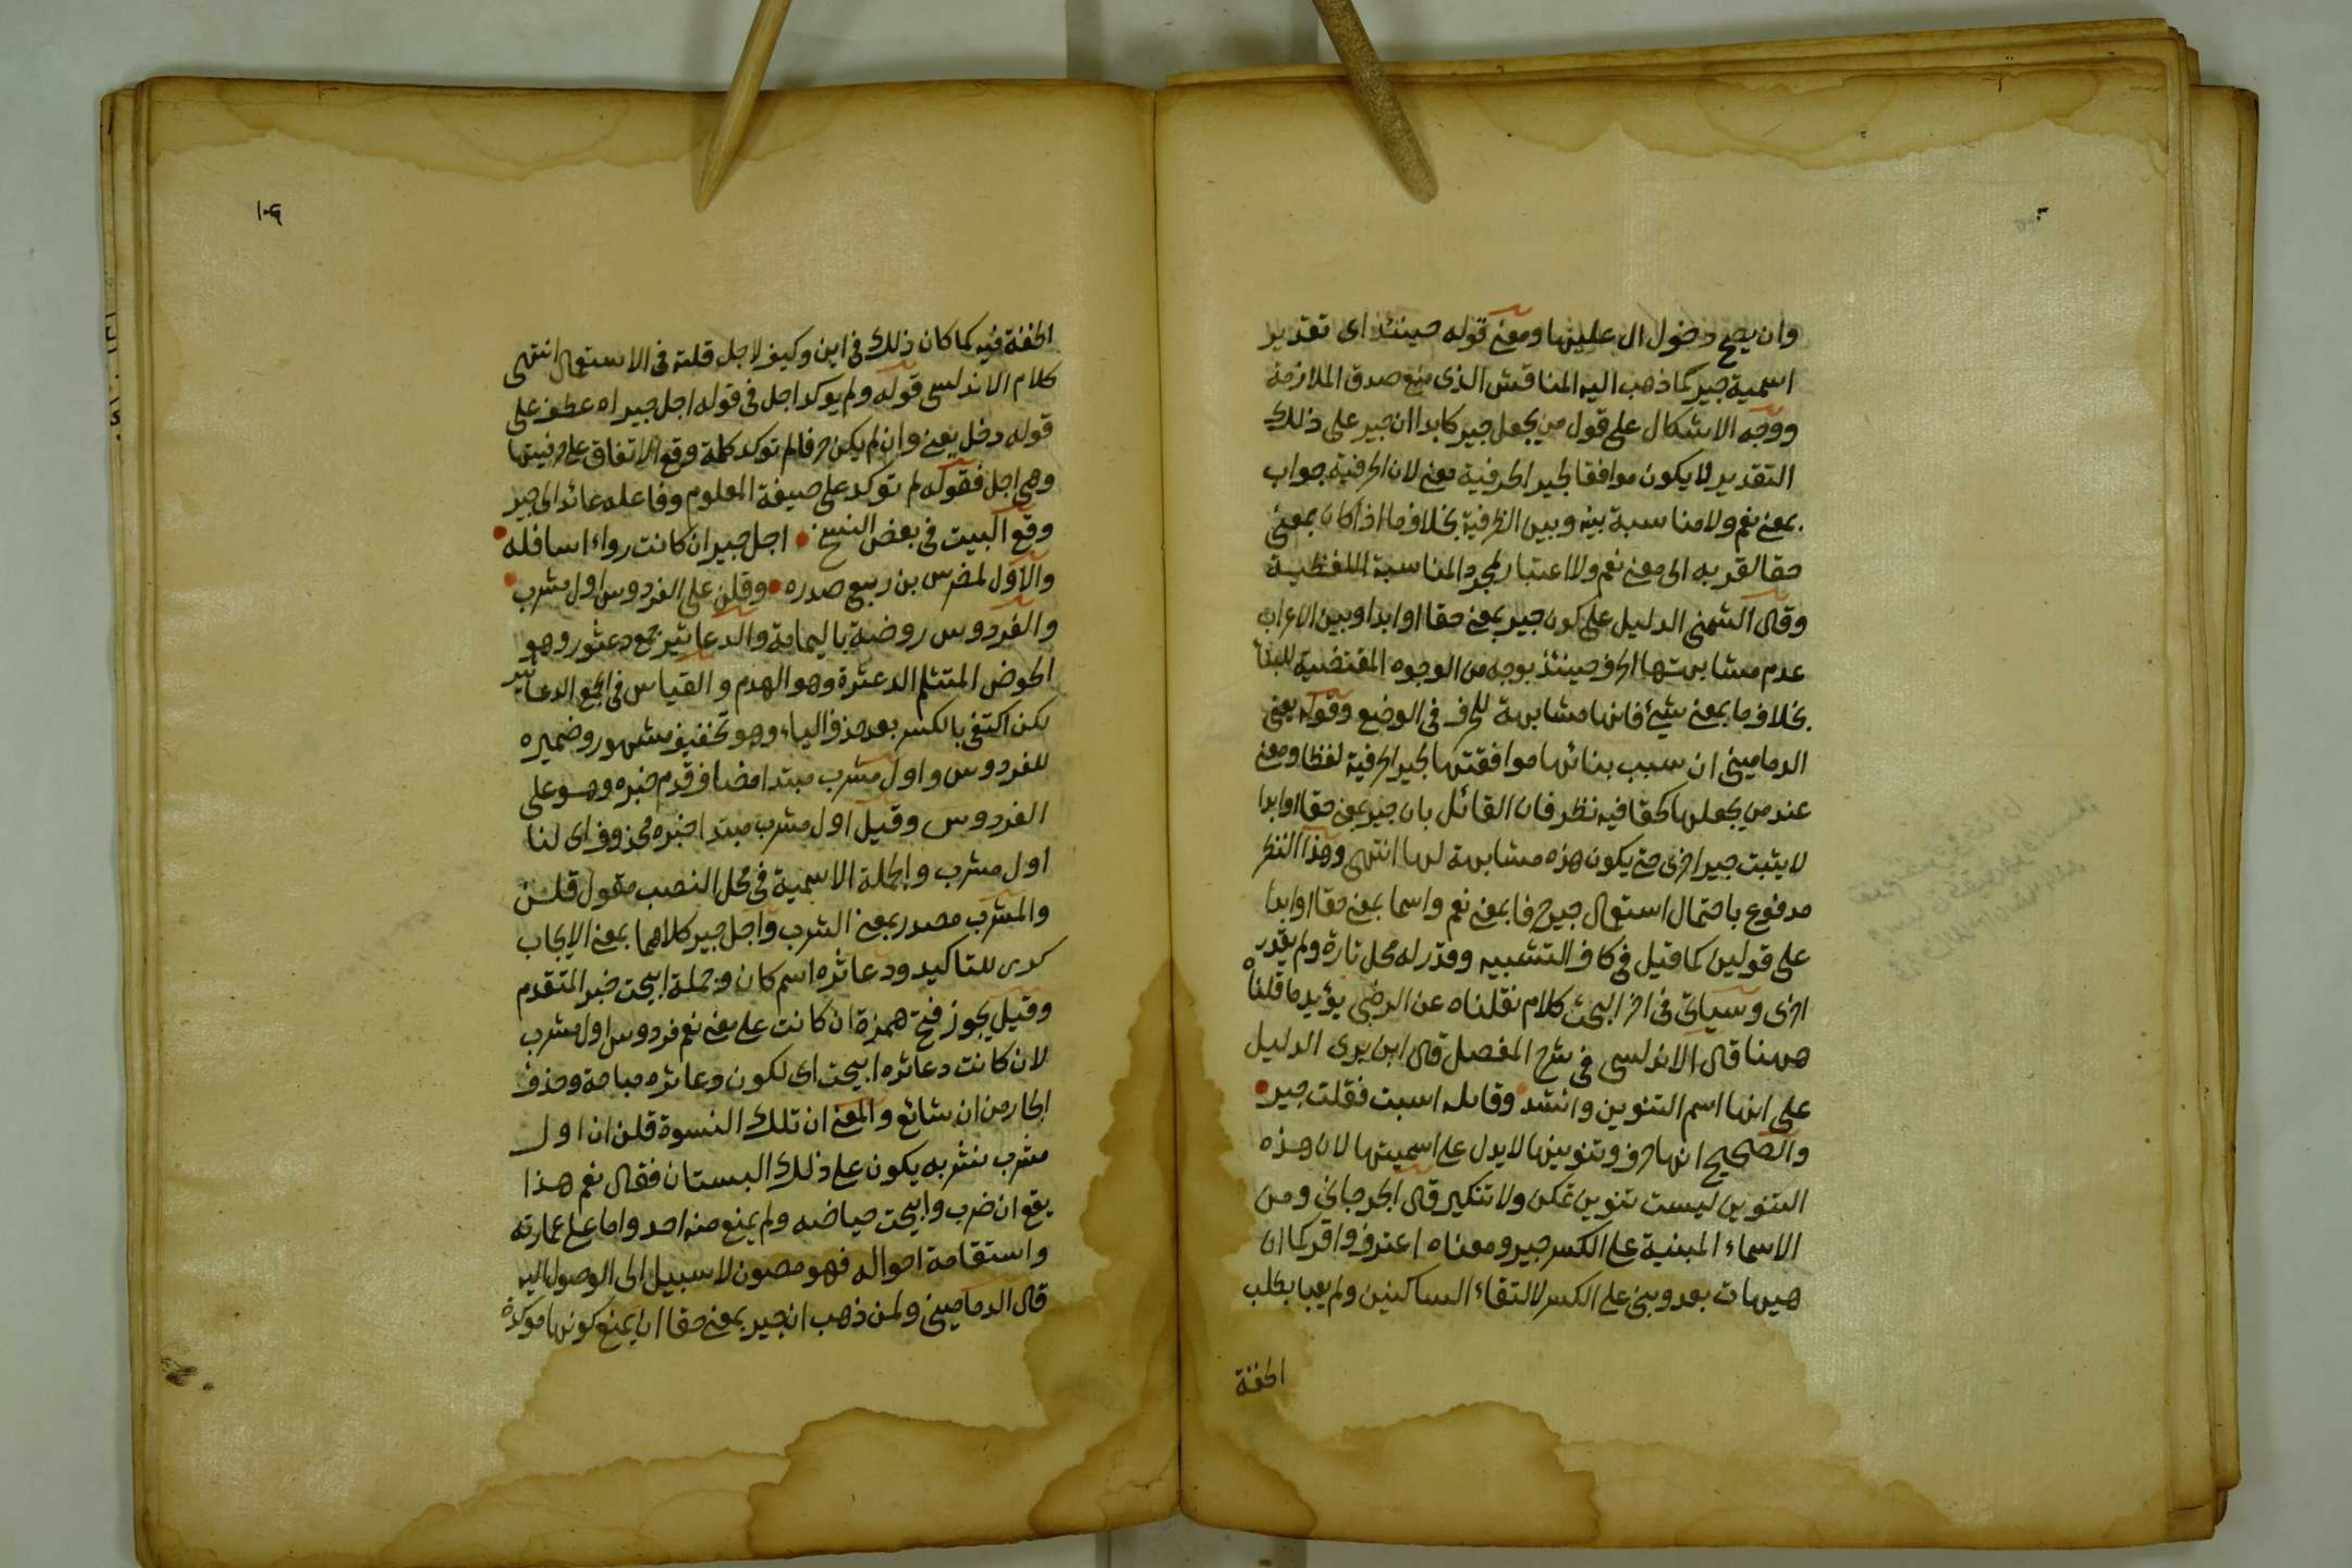 وان يصح دخول ال عليها ومعنى قوله حينئذ اى تقدير
اسمية جير كما ذهب اليه المناقش الذى منع صدق الملازمة
ووجه الاشكال على قول من يجعل جير كابدا ان جير على ذلك
التقدير لا يكون موافقا لجير الحرفية معنى لان الحرفية جواب
بمعنى نعم ولا مناسبة بينه وبين الظرفية بخلاف ما اذا كان بمعنى
حقا لقربه الى معنى نعم ولا اعتبار لمجرد المناسبة اللفظية
وقال الشمنى الدليل على كون جير بمعنى حقا او ابدا وبين الاعراب
عدم مشابهتها الحرف حينئذ بوجه من الوجوه المقتضية للبناء
بخلاف ما بمعنى شىء فانها مشابهة للحرف فى الوضع وقوله يعنى
الدمامينى ان سبب بنائها موافقتها لجير الحرفية لفظا ومعنى
عند من يجعلها كحقا فيه نظر فان القائل بان جير بمعنى حقا او ابدا
لا يثبت جير اخرى حتى يكون هذه مشابهة لها انتهى وهذا النظر
مدفوع باحتمال استعمال جير حرفا بمعنى نعم واسما بمعنى حقا او ابدا
على قولين كما قيل فى كاف التشبيه وقدر له محل تارة ولم يقدر
اخرى وسياتى فى اخر البحث كلام نقلناه عن الرضى يؤيد ما قلناه
ههنا قال الاندلسى فى شرح المفصل قال ابن برى الدليل
على انها اسم التنوين وانشد وقائلة اسيت فقلت جير
والصحيح انها حرف وتنوينها لا يدل على اسميتها لان هذه
التنوين ليست تنوين تمكن ولا تنكير قال الجرجانى ومن
الاسماء المبنية على الكسر جير ومعناه اعترف واقر كما ان
هيهات بعد وبنى على الكسر لالتقاء الساكنين ولم يعبا بطلب
الخفة
١٠٩
الخفة فيه كما كان ذلك فى اين وكيف لاجل قلته فى الاستعمال انتهى
كلام الاندلسى قوله ولم يوكد اجل فى قوله اجل جير اه عطف على
قوله دخل يعنى وان لم يكن حرفا لم توكد كلمة وقع الاتفاق على حرفيتها
وهى اجل فقوله لم توكد على صيغة المعلوم وفاعله عائد الى جير
وقع البيت فى بعض النسخ اجل جير ان كانت رواء اسافله
والاول لمضرس بن ربيع صدره وقلن على الفردوس اول مشرب
والفردوس روضة باليمامة والدعاثير جمع دعثور وهو
الحوض المتثلم الدعثرة وهو الهدم والقياس فى الجمع الدعاثير
لكن اكتفى بالكسر بعد حذف الياء وهو تخفيف مشهور وضميره
للفردوس واول مشرب مبتدا مضاف قدم خبره وهو على
الفردوس وقيل اول مشرب مبتدا خبره محذوف اى لنا
اول مشرب والجملة الاسمية فى محل النصب مقول قلن
والمشرب مصدر بمعنى الشرب واجل جير كلاهما بمعنى الايجاب
كرر للتاكيد ودعاثره اسم كان وجملة ابيحت خبر المتقدم
وقيل يجوز فتح همزة ان كانت على معنى نعم فردوس اول مشرب
لان كانت دعاثره ابيحت اى لكون دعاثره مباحة وحذف
الجار من ان شائع والمعنى ان تلك النسوة قلن ان اول
مشرب نشربه يكون على ذلك البستان فقال نعم هذا
يقع ان خرب وابيحت حياضه ولم يمنع منه احد واما على عمارته
واستقامة احواله فهو مصون لا سبيل الى الوصول اليه
قال الدمامينى ولمن ذهب ان جير بمعنى حقا ان يمنع كونها موكدة